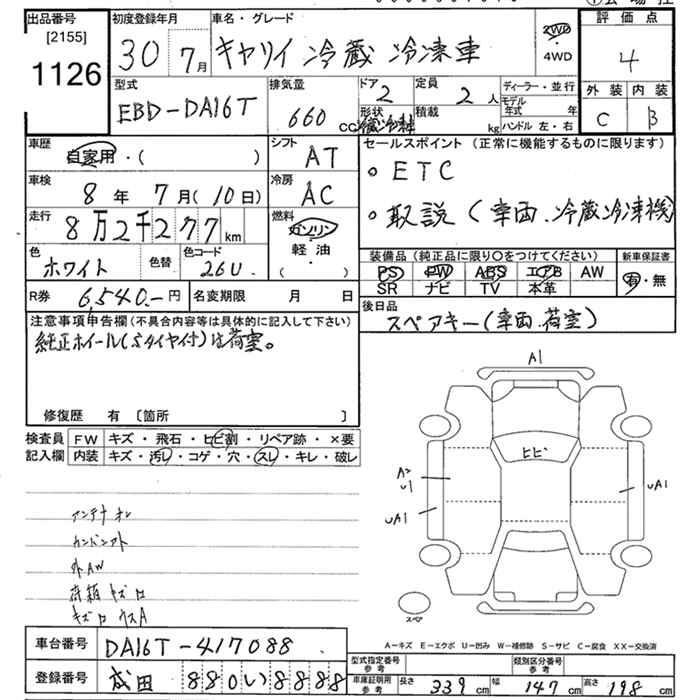 出品番号
[2155]
1126
初度登録年月
30 7月
車名・グレード
キャリイ 冷蔵 冷凍車
2WD
・
4WD
評価点
4
外装 内装
C B
型式
EBD-DA16T
排気量
660 cc
ドア
2
形状
冷蔵冷凍
定員
2人
積載
kg
ディーラー・並行
モデル
年式 年
ハンドル 左・右
車歴
自家用・( )
シフト
AT
車検
8年 7月(10日)
冷房
AC
走行
8万2千277km
燃料
ガソリン
軽油
・
( )
色
ホワイト
色替
色コード
26U
セールスポイント (正常に機能するものに限ります)
。ETC
。取説(車両.冷蔵冷凍機)
装備品 (純正品に限り〇をつけてください)
PS PW ABS エアB AW
SR ナビ TV 本革
新車保証書
有・無
R券 6,540.-円
名変期限 月 日
後日品
スペアキー(車両.荷室)
注意事項申告欄(不具合内容等は具体的に記入して下さい)
純正ホイール(Sタイヤ付)は荷室。
修復歴 有 〔箇所 〕
検査員
記入欄
FW キズ・飛石・ヒビ割・リペア跡・×要
内装 キズ・汚レ・コゲ・穴・スレ・キレ・破レ
アンテナオレ
外AW
荷箱キズ
A1
ヒビ
A2
U1
UA1
UA1
スペア
A−キズ E−エクボ U−凹み W−補修跡 S−サビ C−腐食 XX−交換済
車台番号 DA16T-417088
登録番号 成田 880い8888
型式指定番号
参考
類別区分番号
参考
車庫証明用
参考
長さ 339cm 幅 147cm 高さ 198cm